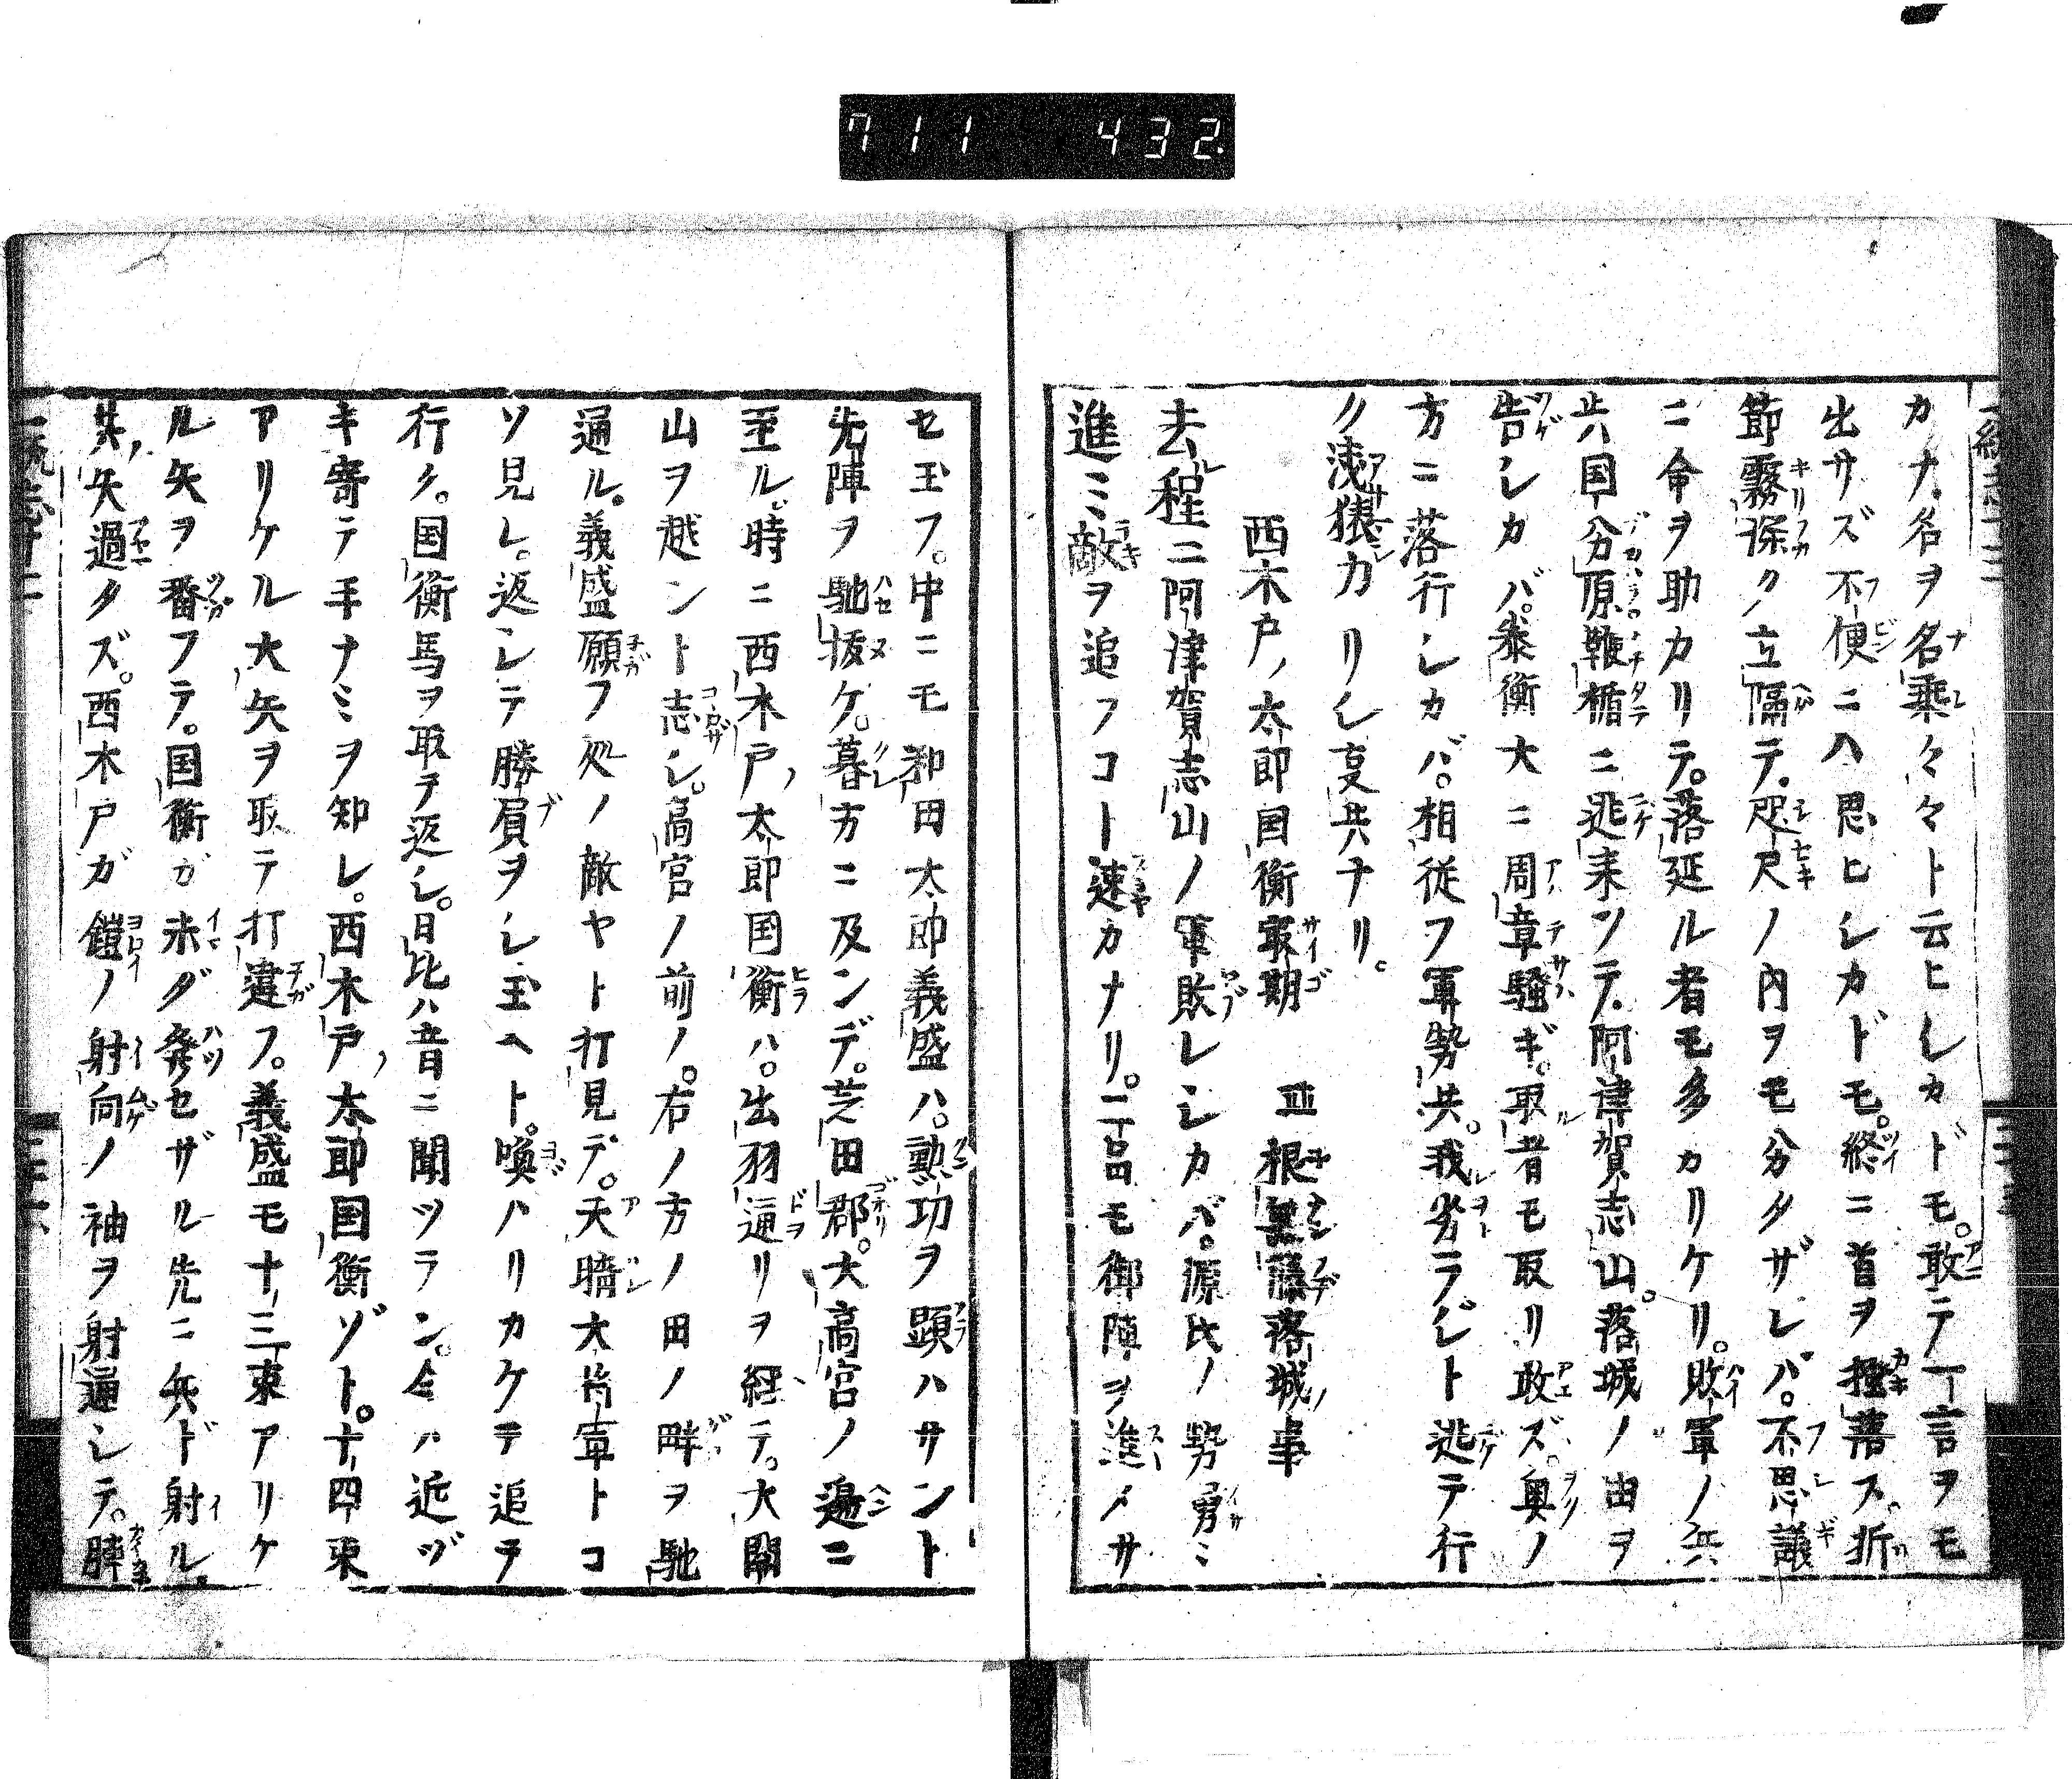 711 432
カナ名ヲ名乗々々ト云ヒシカドモ。敢テ一言ヲモ
出サズ不便ニハ思ヒシカドモ。終ニ首ヲ掻落ス折
節霧深ク立隔テ。咫尺ノ内ヲモ分タザレバ。不思議
ニ命ヲ助カリテ。落延ル者モ多カリケリ。敗軍ノ兵
共国分原鞭楯ニ逃来ツテ。阿津賀志山。落城ノ由ヲ
告シカバ。泰衡大ニ周章騒ギ。取者モ取リ敢ズ。奥ノ
方ニ落行シカバ。相従フ軍勢共。我劣ラジト逃テ行
ク浅猿カリシ事共ナリ。
西木戸ノ太郎国衡最期 並根無藤落城ノ事
去程ニ阿津賀志山ノ軍敗レシカバ。源氏ノ勢勇ミ
進ミ敵ヲ追フコト速カナリ。二品モ御陣ヲ進メサ
セ玉フ。中ニモ和田太郎義盛ハ。勲功ヲ顕ハサント
先陣ヲ馳抜ケ。暮方ニ及ンデ。芝田郡。大高宮ノ邊ニ
至ル。時ニ西木戸ノ太郎国衡ハ。出羽通リヲ経テ。大関
山ヲ越ント志シ。高宮ノ前ノ。右ノ方ノ田ノ畔ヲ馳
通ル。義盛願フ処ノ敵ヤト打見デ。天晴大将軍トコ
ソ見レ。返シテ勝負ヲシ玉ヘト。喚ハリカケテ追テ
行ク。国衡馬ヲ取テ返シ。日比ハ音ニ聞ツラン。今ハ近ヅ
キ寄テ手ナミヲ知レ。西木戸ノ太郎国衡ゾト。十四束
アリケル大矢ヲ取テ打違フ。義盛モ十三束アリケ
ル矢ヲ番フテ。国衡ガ未ダ発セザル先ニ兵ド射ル。
其ノ矢過タズ。西木戸ガ鎧ノ射向ノ袖ヲ射通シテ。膊